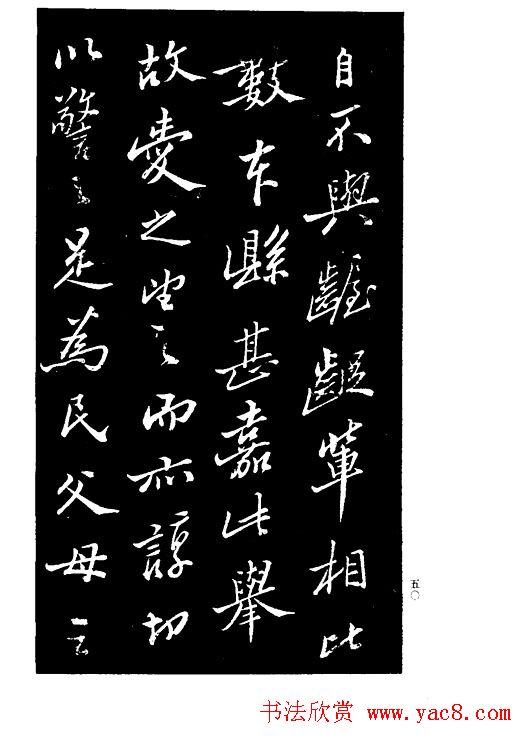 自不與齷齪輩相比
數本縣甚嘉此舉
故愛之望之而亦諄切
以警之是為民父母
五〇
书法欣赏 www.yac8.com